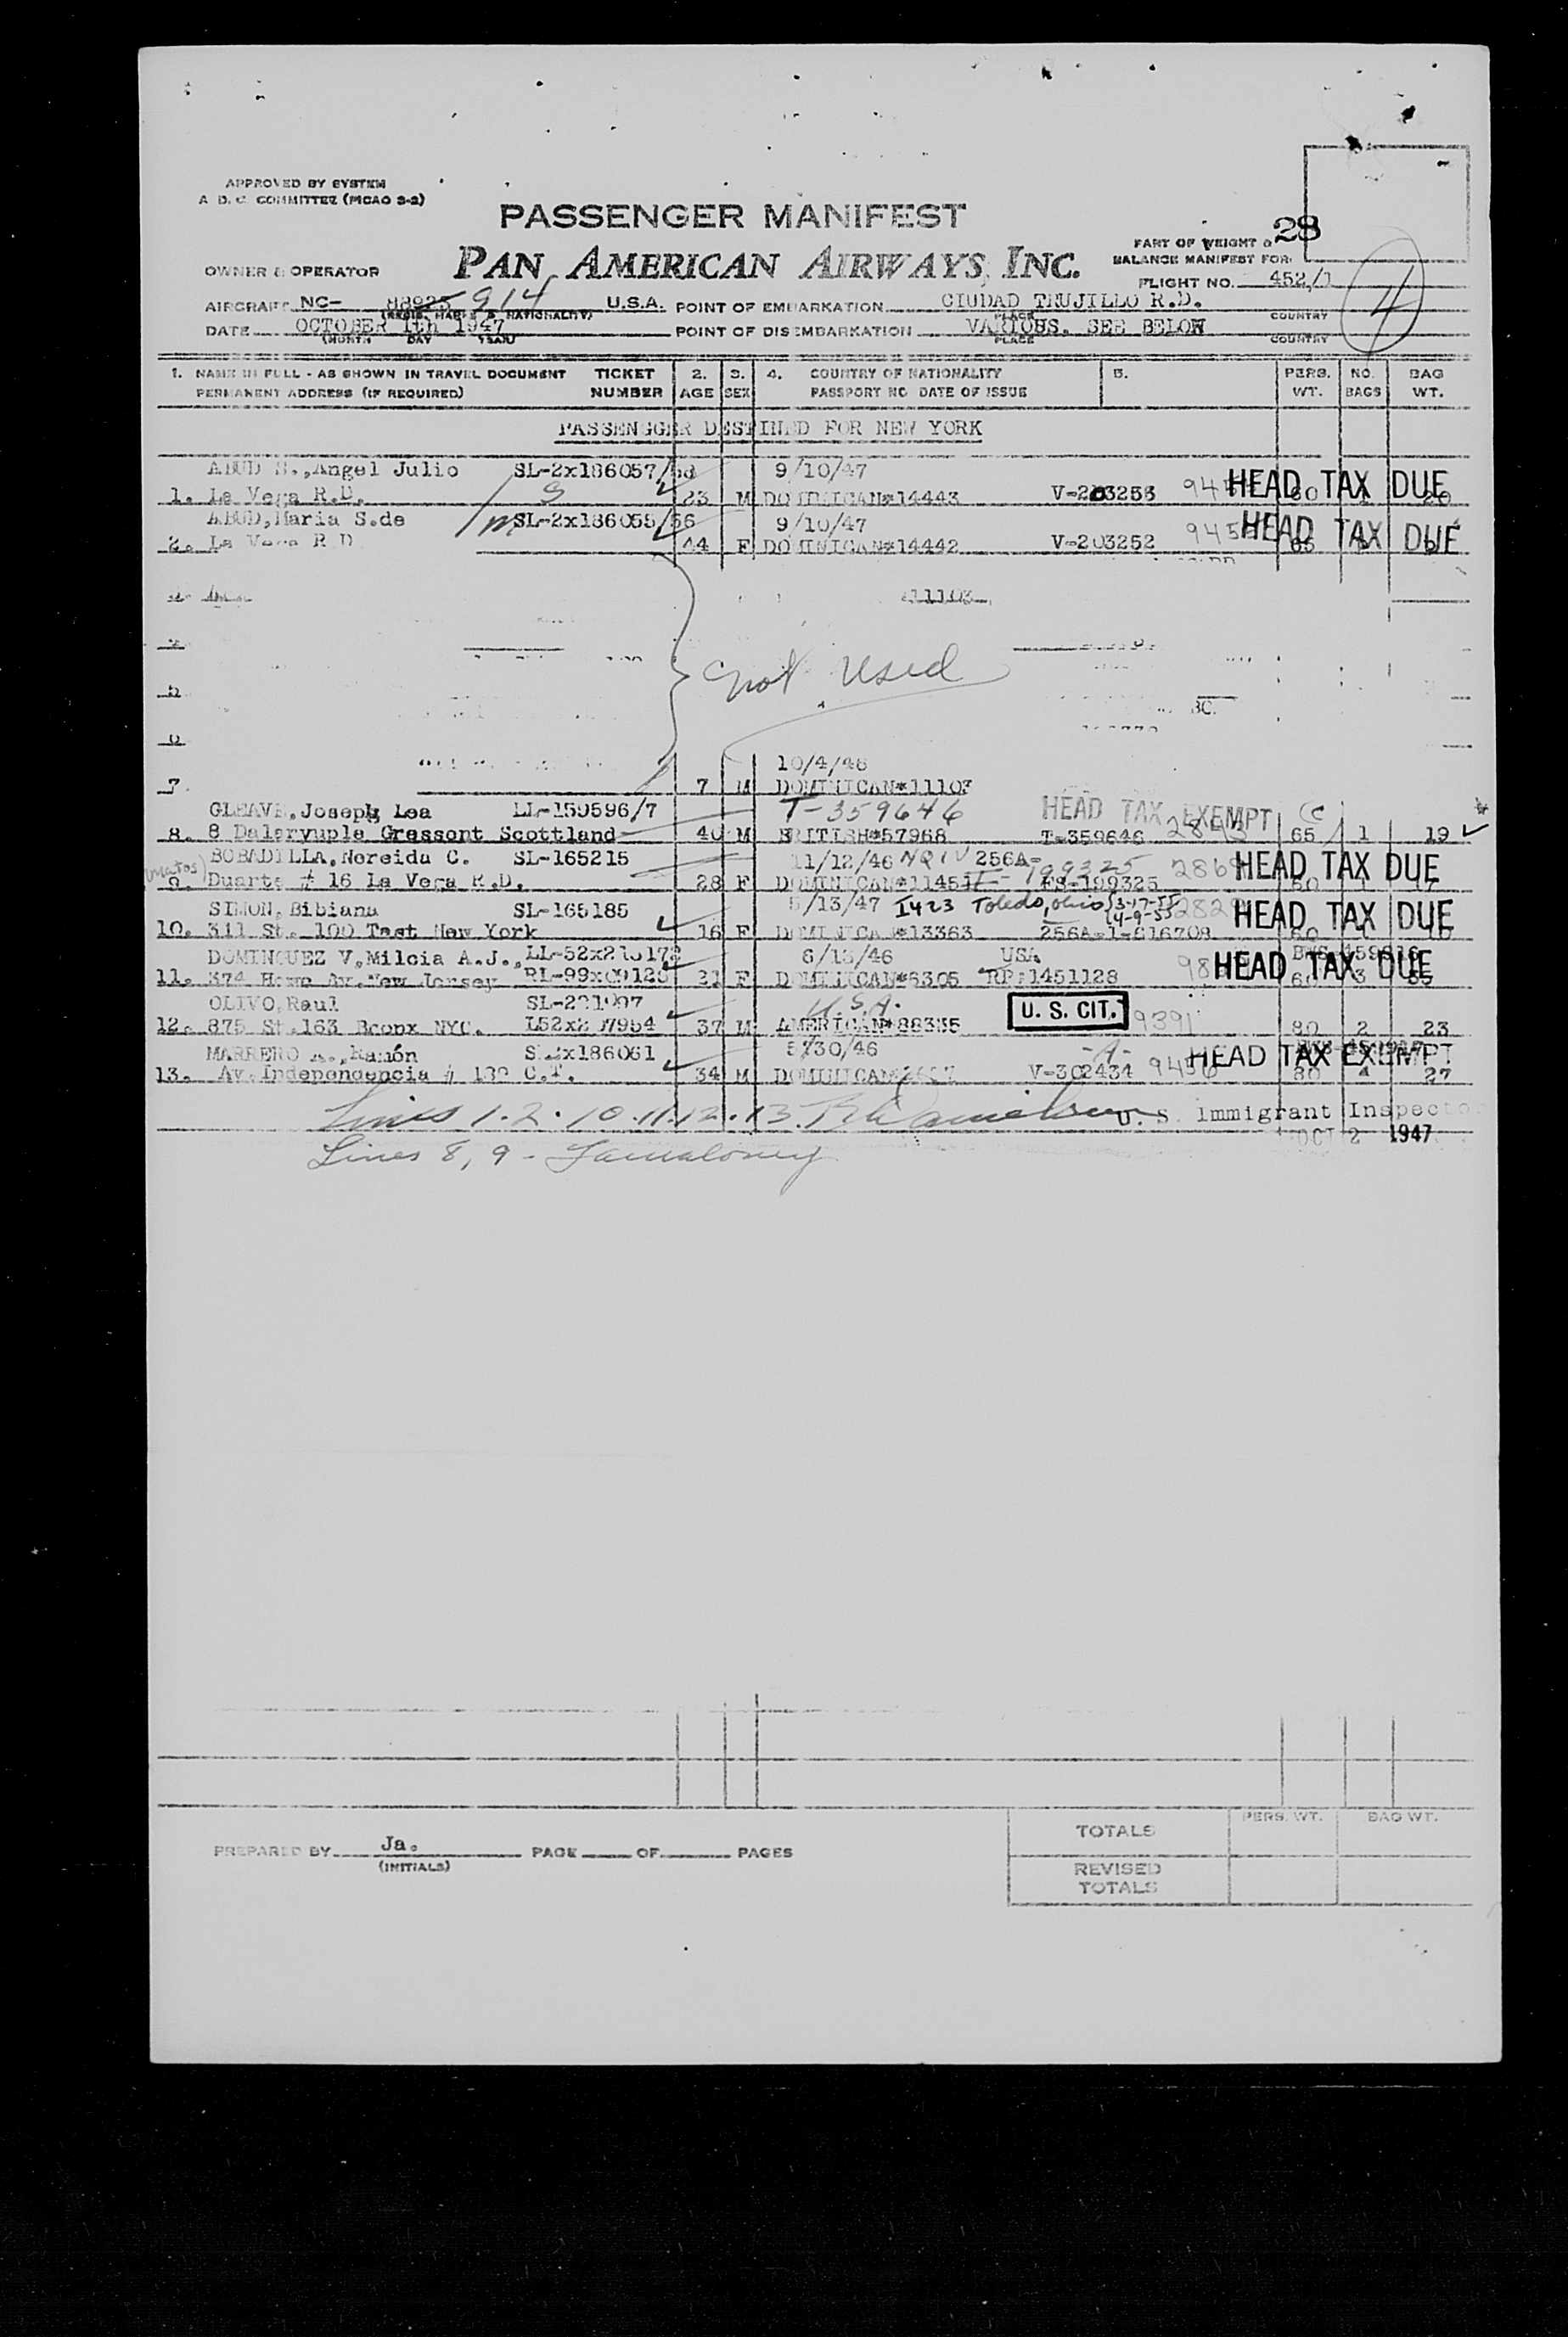 APPROVED BY SYSTEM
A. D. C. COMMITTEE (PICAO 3-2)
PASSENGER MANIFEST
28
PART OF WEIGHT &
BALANCE MANIFEST FOR
OWNER & OPERATOR PAN AMERICAN AIRWAYS, INC.
FLIGHT NO. 452/1
4
AIRCRAFT NC- 88923 914 U.S.A. POINT OF EMBARKATION CIUDAD TRUJILLO R.D.
(REGIS. MARKS & NATIONALITY) PLACE COUNTRY
DATE OCTOBER 1th 1947 POINT OF DISEMBARKATION VARIOUS. SEE BELOW
(MONTH DAY YEAR) PLACE COUNTRY
1. NAME IN FULL - AS SHOWN IN TRAVEL DOCUMENT TICKET 2. 3. 4. COUNTRY OF NATIONALITY 5. PERS. NO. BAG
PERMANENT ADDRESS (IF REQUIRED) NUMBER AGE SEX PASSPORT NO DATE OF ISSUE WT. BAGS WT.
PASSENGGER DESTINED FOR NEW YORK
ABUD S.,Angel Julio SL-2x186057/58 9/10/47
1. La Vega R.D. S 23 M DOMINICAN*14443 V-203253 HEAD TAX DUE
ABUD,Maria S.de m SL-2x186055/56 9/10/47
2. La Vega R D 44 F DOMINICAN*14442 V-203252 945 HEAD TAX DUE
not used
10/4/46
7. 7 M DOMINICAN*11107
GLEAVE,Joseph Lea LL-150596/7 T-359646 HEAD TAX EXEMPT
8. 8 Daleryuple Gressont Scottland 40 M BRITISH*57968 T-359646 65 1 19
(matos) BOBADILLA,Nereida C. SL-165215 11/12/46 NQIV 256A-
9. Duarte # 16 La Vega R.D. 28 F DOMINICAN I-199325 HEAD TAX DUE
SIMON, Bibiana SL-165185 5/13/47 I423 Toledo, ohio 3-17-55
4-9-55
10. 311 St. 100 Tast New York 16 F DOMINICAN*13363 256A-I-616708 HEAD TAX DUE
DOMINGUEZ V,Milcia A.J., 6/15/46 USA
11. 374 Howe Av.New Jersey 21 F DOMINICAN*6305 RP:1451128 HEAD TAX DUE
OLIVO,Raul U.S.A. U. S. CIT.
12. 875 St.163 Bronx NYC. 37 M AMERICAN*88335 9391 80 2 23
MARRERO A.,Ramón 5/30/46
13. Av.Independencia # C.T. 34 M DOMINICAN V-302434 9456 HEAD TAX EXEMPT 80 4 27
Lines 1.2.10.11.12.13. U. S. Immigrant Inspector
OCT 2 1947
Lines 8, 9 -
PREPARED BY Ja. PAGE OF PAGES
(INITIALS)
TOTALS PERS. WT. BAG WT.
REVISED
TOTALS